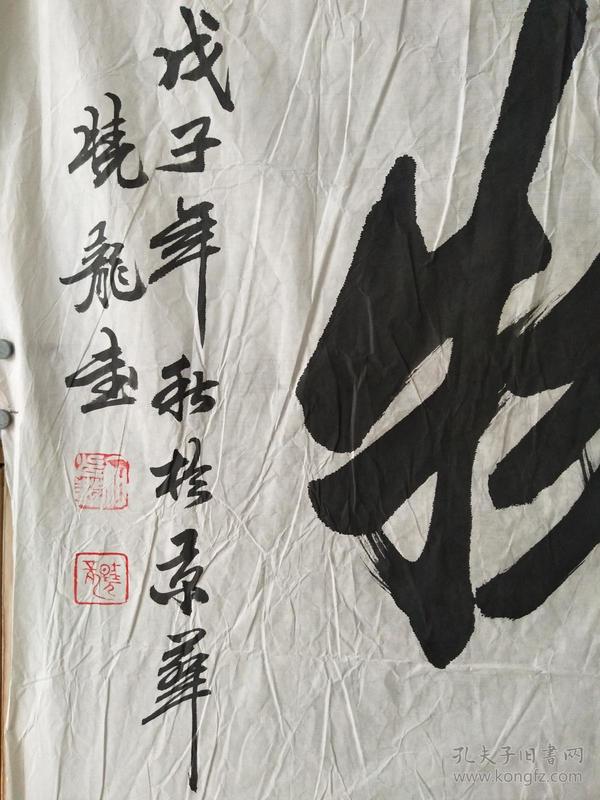 戊子年秋於京華
曉龍書
孔夫子旧書网
www.kongfz.com